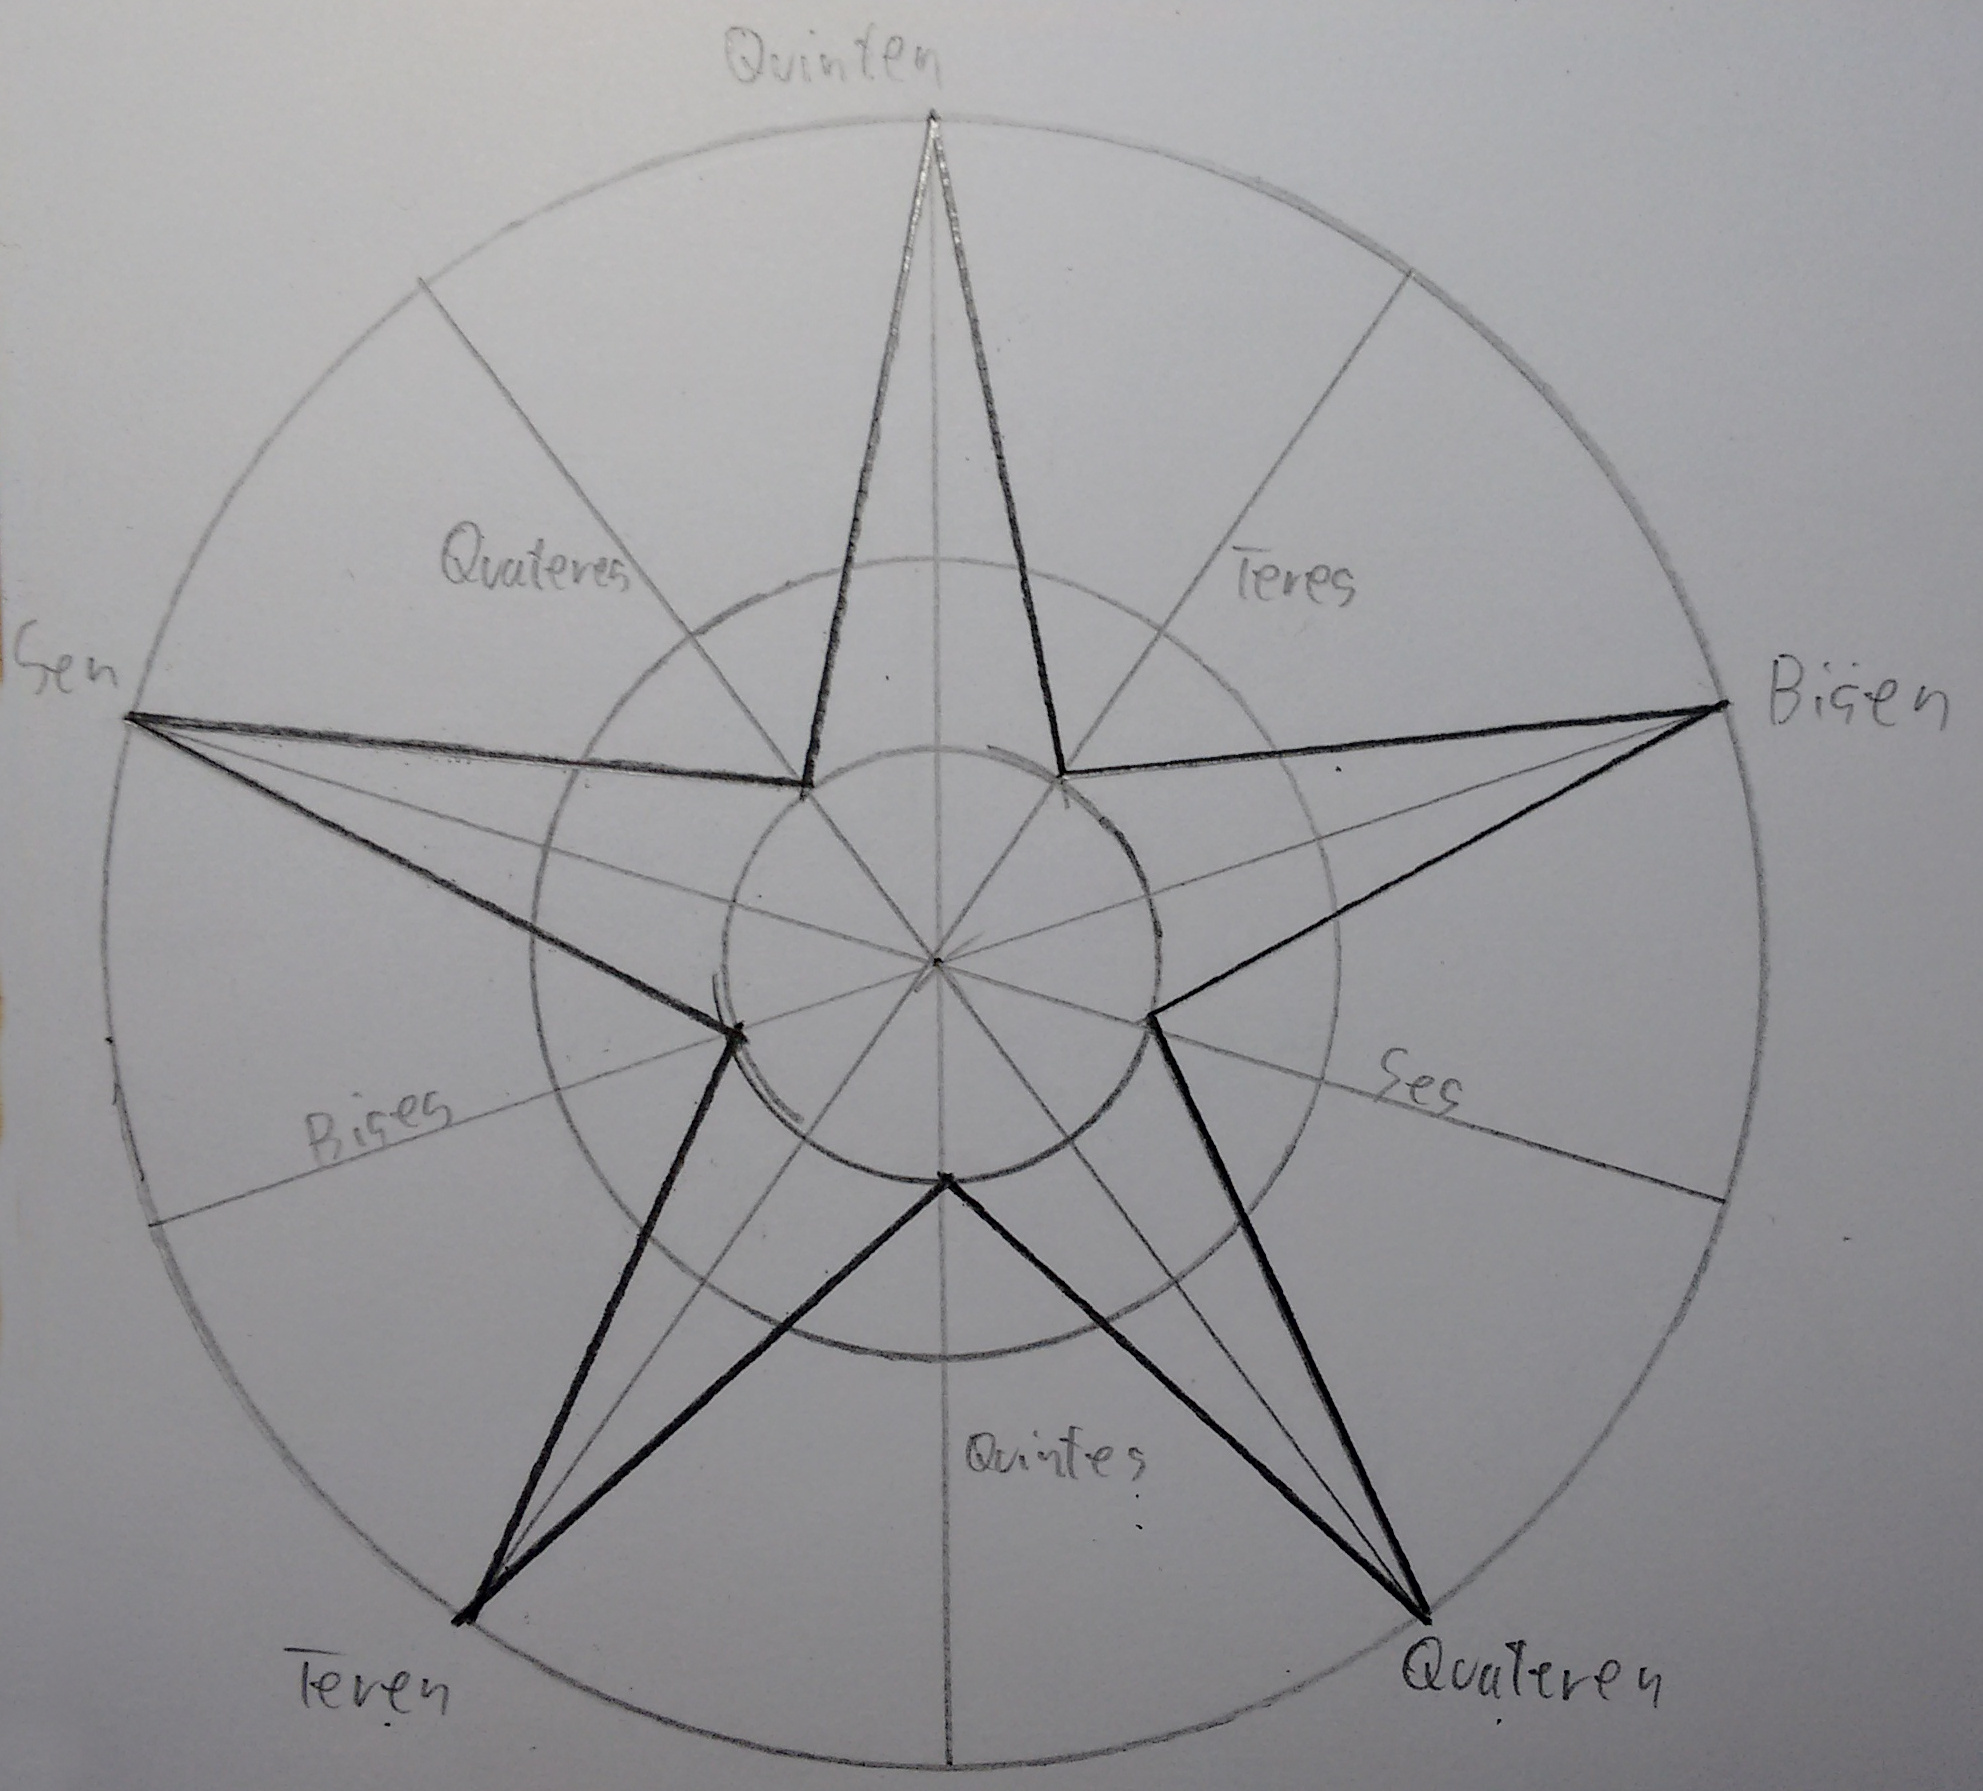 Quinten
Quateres
Teres
Sen
Bisen
Bises
Ses
Quintes
Teren
Quateren